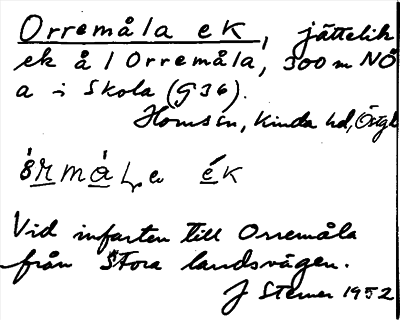 Orremåla ek, jättelik
ek å l Orremåla, 300 m NÖ
a i Skola (G 36).
Hornsn, Kinda hd, Östgl
ek
Vid infarten till Orremåla
från Stora landsvägen.
J Sterner 1952